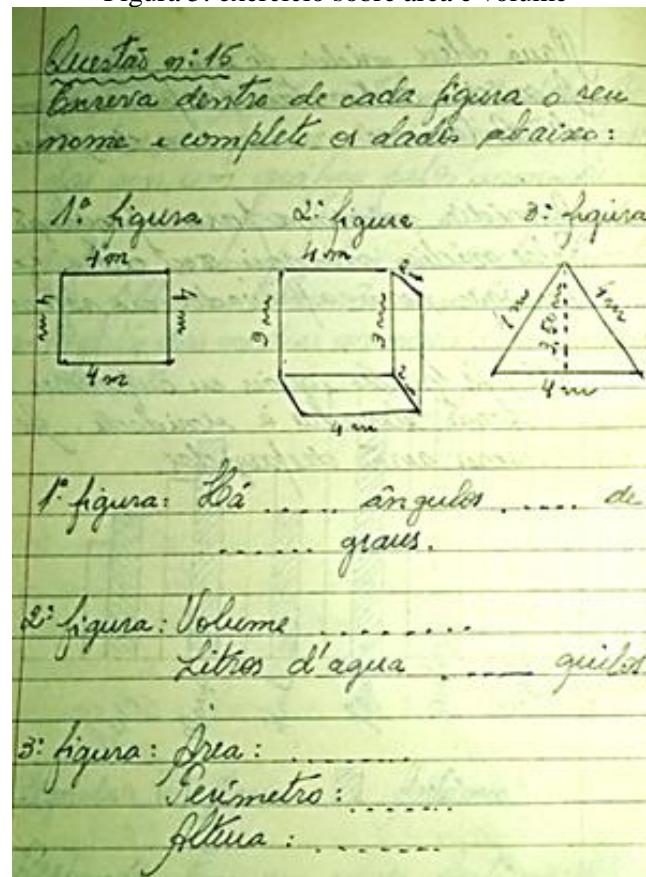 Figura 5: exercício sobre área e volume
Questão nº: 15
Escreva dentro de cada figura o seu
nome e complete os dados abaixo:
1ª figura 2ª figura 3ª figura
4 m 4 m 2
4 m 4 m 9 m 3 m 4 m 3,50 m 4 m
4 m 2 4 m
4 m
1ª figura: Há ..... ângulos ..... de
...... graus.
2ª figura: Volume ........
Litros d'agua ..... quilos
3ª figura: Área: .......
Perímetro: ......
Altura: .......